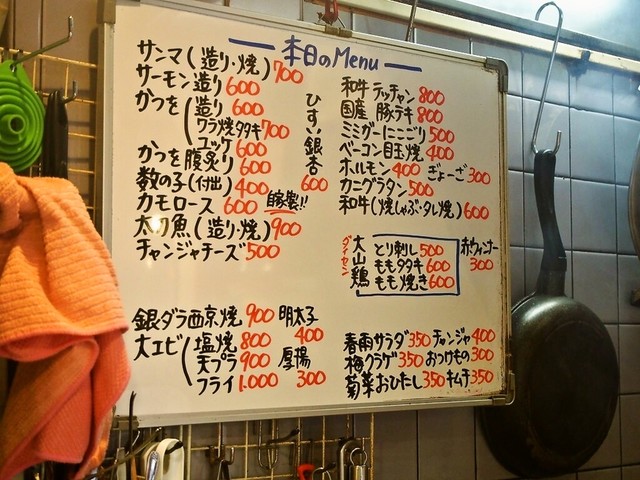 本日のMenu
サンマ(造り・焼) 700
サーモン造り 600
かつを(造り 600
ワラ焼タタキ 700
ユッケ 600
かつを腹炙り 600
数の子(付出) 400
カモロース 600 自家製!!
太刀魚(造り・焼) 900
チャンジャチーズ 500
ひすい銀杏 600
銀ダラ西京焼 900
大エビ(塩焼 800
天プラ 900
フライ 1.000
明太子 400
厚揚 300
和牛テッチャン 800
国産豚テキ 800
ミミガーにこごり 500
ベーコン目玉焼 400
ホルモン 400 ぎょーざ 300
カニグラタン 500
和牛(焼しゃぶ・タレ焼) 600
ダイセン
大山鶏
とり刺し 500
ももタタキ 600
もも焼き 600
赤ウィンナー 300
春雨サラダ 350 チャンジャ 400
梅クラゲ 350 おつけもの 300
菊菜おひたし 350 キムチ 350